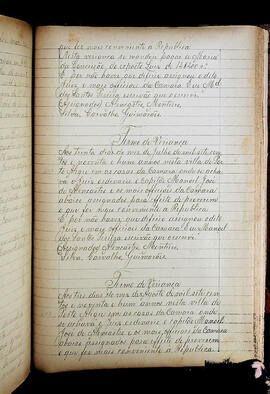 que fez mais conveniente a Republica
Nesta vereança se mandou pagar a Maria
da Conceição, de
E por não haver que deferir assignou o dito
Juiz e mais officiaes da Camara Eu Mel
dos Santos escrivão que escrevi
Assignados Alencastre, Monteiro,
Silva, Carvalho, Guimarães
Termo de Vereança
Aos trinta dias do mez de Julho de mil sete cen
tos e noventa e hum annos nesta villa de Por
to Alegre em as casas da Camara onde se acha
va o Juiz ordinario o Capitão Manoel José
de Alencastre e os mais officiaes da Camara
abaixo assignados para effeito de proverem
o que for mais conveniente a Republica.
E por não haver que deferir assignou o dito
Juiz, e mais officiaes da Camara E eu Manoel
dos Santos escrivão que escrevi.
Assignados Alencastre, Monteiro,
Silva, Carvalho, Guimarães
Termo de Vereança
Aos tres dias do mez de Agosto de mil sete cen
tos e noventa e hum annos, nesta villa de
Porto Alegre em as casas da Camara onde
se achava o Juiz ordinario o capitão Manoel
José de Alencastre e os mais officiaes da Camara
abaixo assignados para effeito de proverem
o que for mais conveniente a Republica.